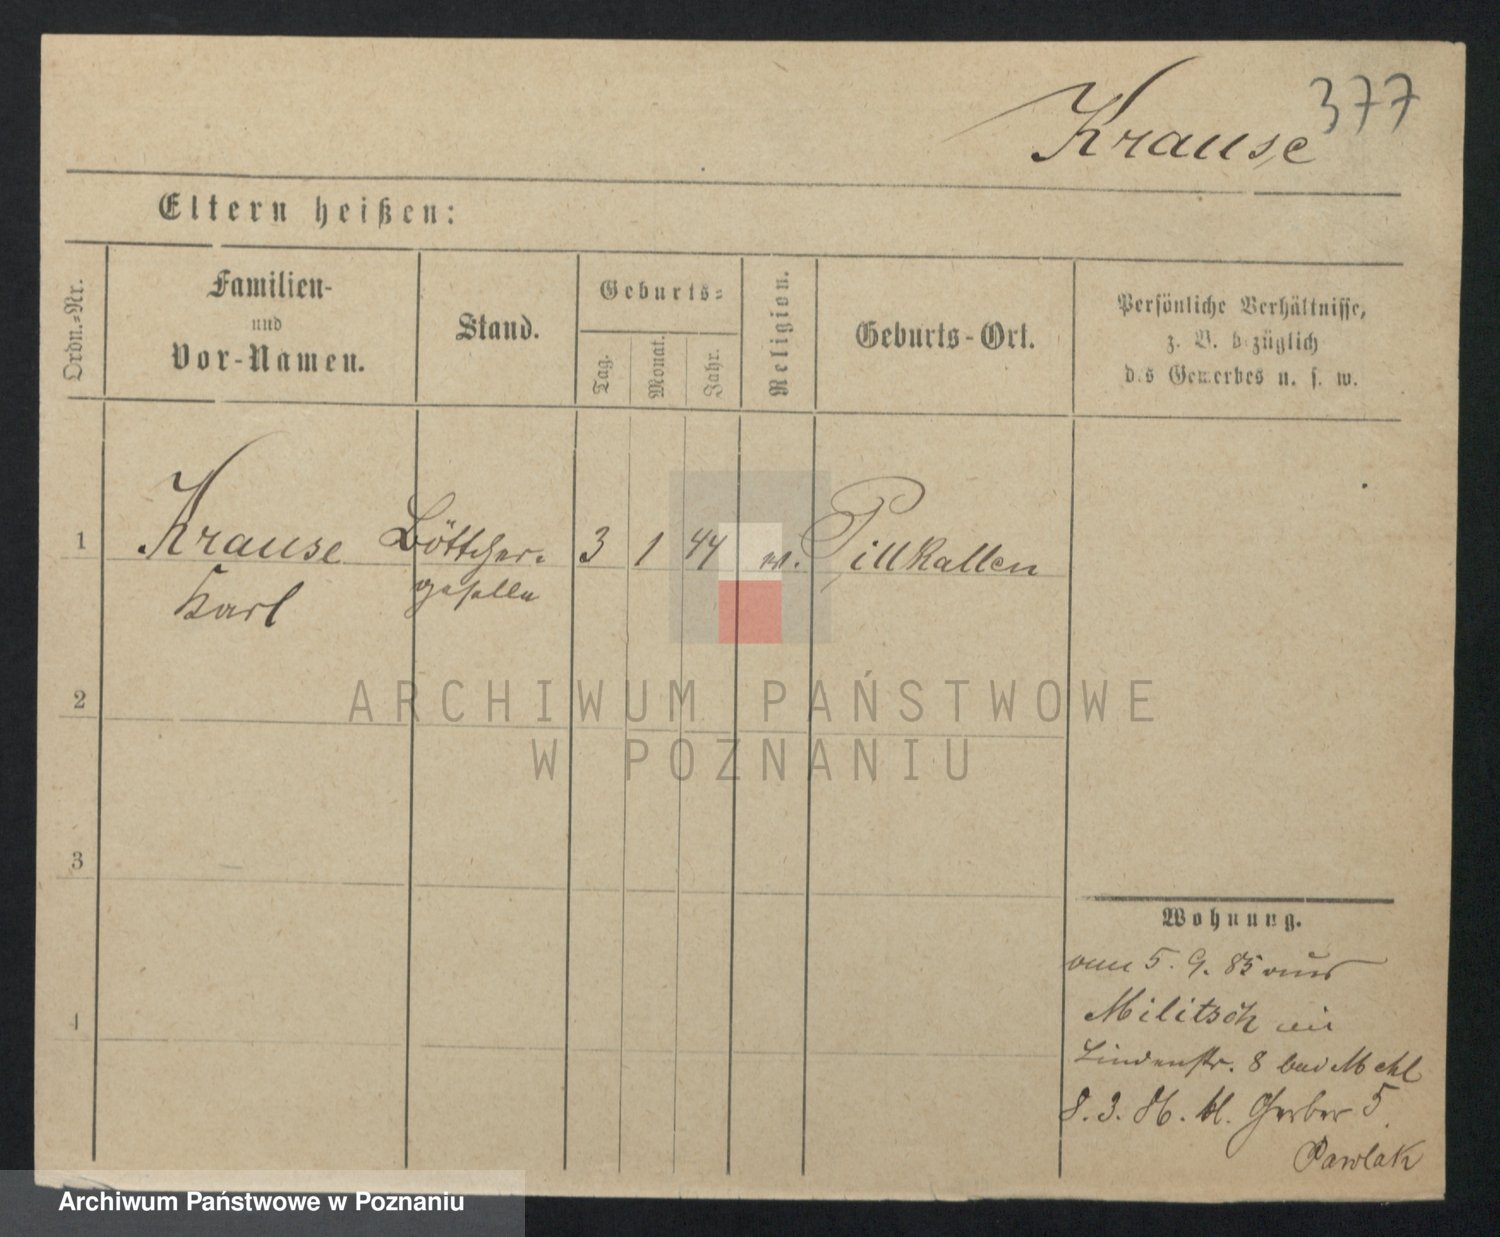 377
Krause
Eltern heißen:
Ordn.-Nr.
Familien-
und
Vor-Namen.
Stand.
Geburts-
Tag.
Monat.
Jahr.
Religion.
Geburts-Ort.
Persönliche Verhältnisse,
z. B. bezüglich
des Gewerbes u. s. w.
1
Krause
Karl
Böttcher-
geselle
3
1
44
Pillkallen
2
3
4
Wohnung.
5. 9. 85 aus
Militsch
Lindenstr. 8 bei
8. 3. 86. kl. Gerber 5
Pawlak
ARCHIWUM PAŃSTWOWE
W POZNANIU
Archiwum Państwowe w Poznaniu